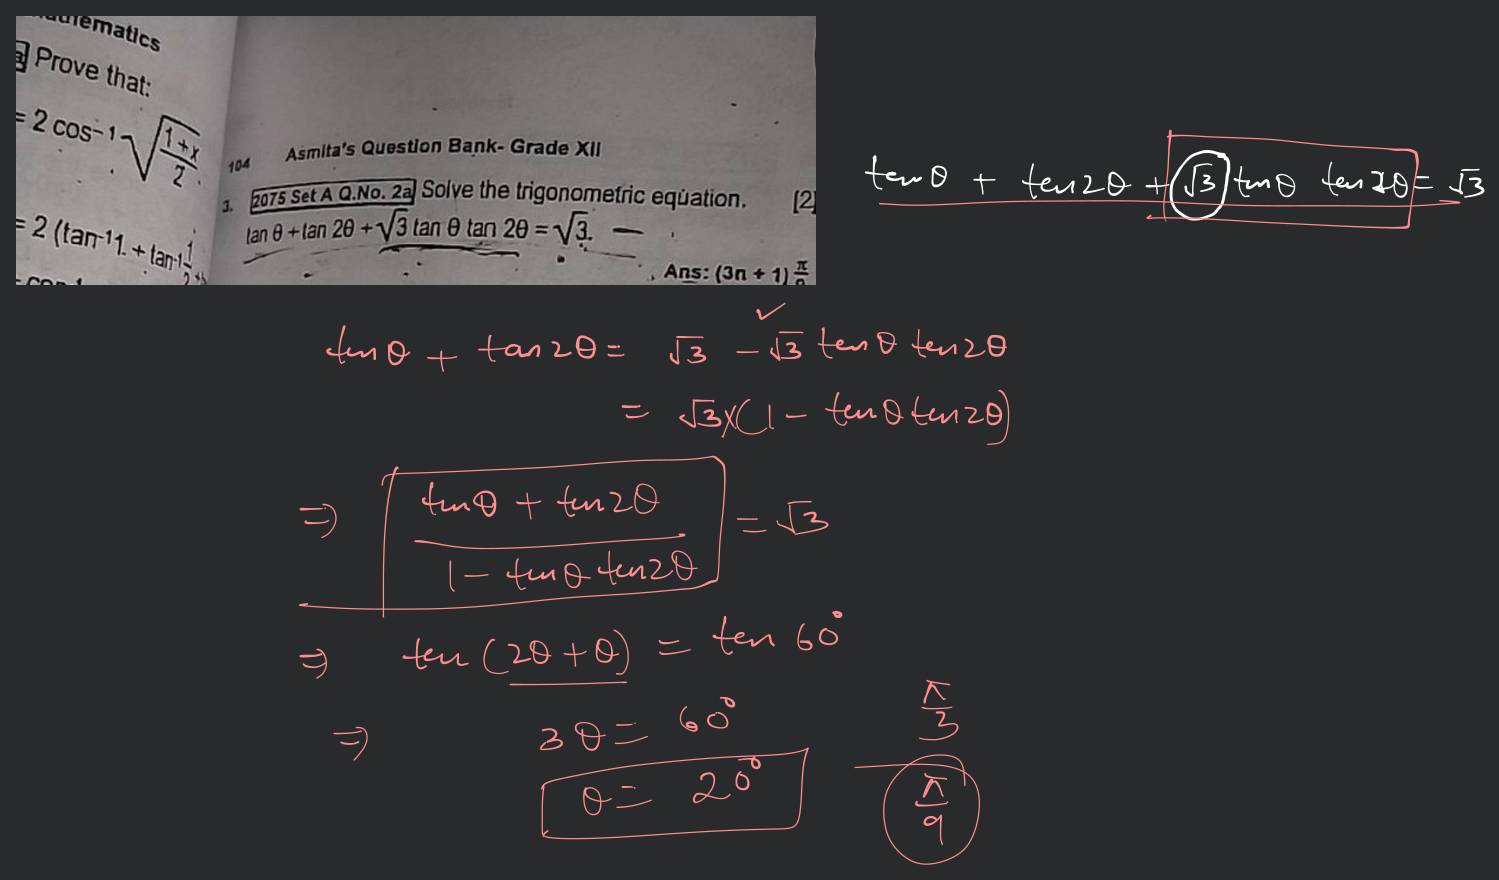 Prove that:
= 2 cos⁻¹ √((1+x)/2)
= 2 (tan⁻¹1 + tan⁻¹ 1/2
104 Asmita's Question Bank- Grade XII
3. 2075 Set A Q.No. 2a Solve the trigonometric equation. [2]
tan θ + tan 2θ + √3 tan θ tan 2θ = √3.
Ans: (3n + 1) π/9
tan θ + tan 2θ + √3 tan θ tan 2θ = √3
tan θ + tan 2θ = √3 − √3 tan θ tan 2θ
= √3 × (1 − tan θ tan 2θ)
⇒ (tan θ + tan 2θ)/(1 − tan θ tan 2θ) = √3
⇒ tan (2θ + θ) = tan 60°
⇒ 3θ = 60°
θ = 20°
π/3
π/9